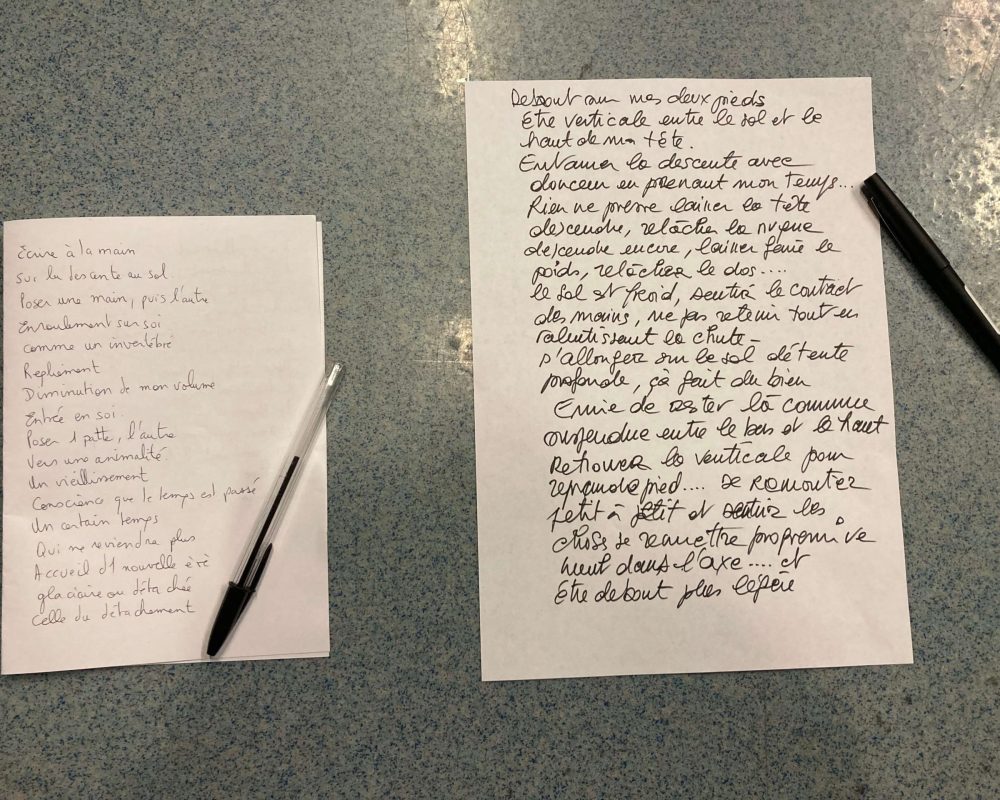 Écrire à la main
sur la descente au sol.
Poser une main, puis l'autre
Enroulement sur soi
comme un invertébré
Repliement
Diminution de mon volume
Entrée en soi.
Poser 1 patte, l'autre
Vers une animalité.
Un vieillissement
Conscience que le temps est passé
Un certain temps
Qui ne reviendra plus
Accueil d'1 nouvelle ère
glaciaire ou détachée
Celle du détachement
Debout sur mes deux pieds
Être verticale entre le sol et le
haut de ma tête.
Entamer la descente avec
douceur en prenant mon temps...
Rien ne presse laisser la tête
descendre, relâcher la nuque
descendre encore, laisser faire le
poids, relâcher le dos....
le sol est froid, sentir le contact
des mains, ne pas retenir tout en
ralentissant la chute -
s'allonger sur le sol détente
profonde, çà fait du bien
Envie de rester là comme
suspendue entre le bas et le haut
Retrouver la verticale pour
reprendre pied.... se remonter
petit à petit et sentir les
choses se remettre
dans l'axe.... et
Être debout plus légère